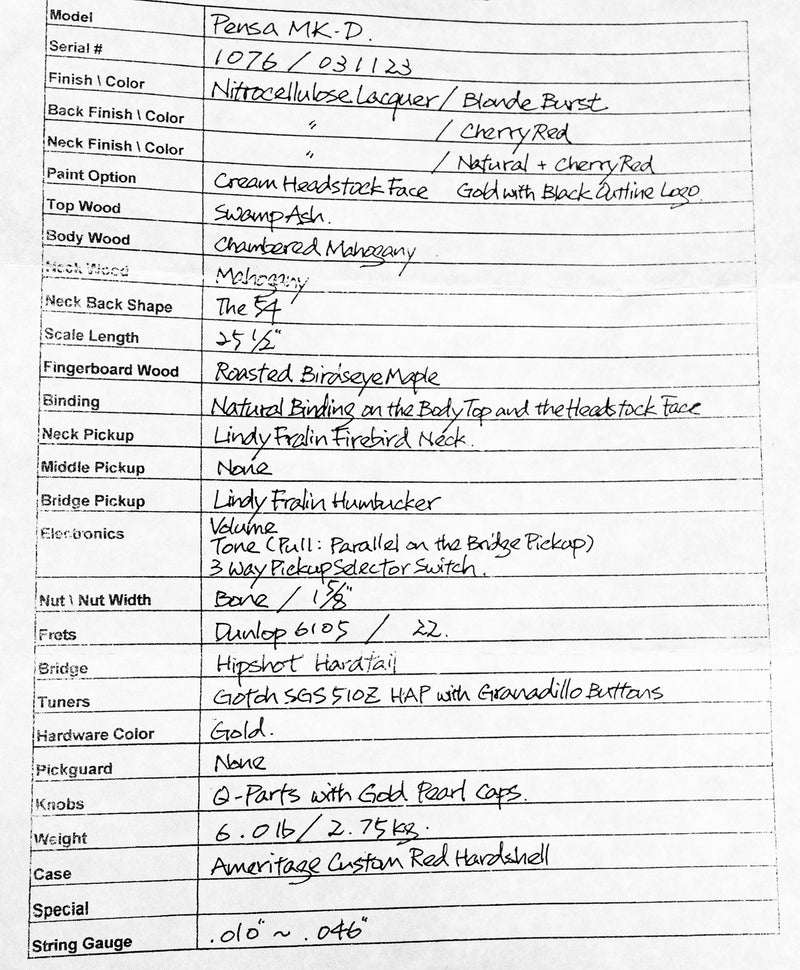 Model Pensa MK-D.
Serial # 1076 / 031123
Finish \ Color Nitrocellulose Lacquer / Blonde Burst
Back Finish \ Color " / Cherry Red
Neck Finish \ Color " / Natural + Cherry Red
Paint Option Cream Headstock Face Gold with Black Outline Logo
Top Wood Swamp Ash.
Body Wood Chambered Mahogany
Neck Wood Mahogany
Neck Back Shape The 54
Scale Length 25 1/2"
Fingerboard Wood Roasted Birdseye Maple
Binding Natural Binding on the Body Top and the Headstock Face
Neck Pickup Lindy Fralin Firebird Neck.
Middle Pickup None
Bridge Pickup Lindy Fralin Humbucker
Electronics Volume
Tone (Pull : Parallel on the Bridge Pickup)
3 Way Pickup Selector Switch.
Nut \ Nut Width Bone / 1 5/8"
Frets Dunlop 6105 / 22.
Bridge Hipshot Hardtail
Tuners Gotoh SGS 510Z HAP with Granadillo Buttons
Hardware Color Gold.
Pickguard None
Knobs Q-Parts with Gold Pearl Caps.
Weight 6.0 lb / 2.75 kg.
Case Ameritage Custom Red Hardshell
Special
String Gauge .010" ~ .046"